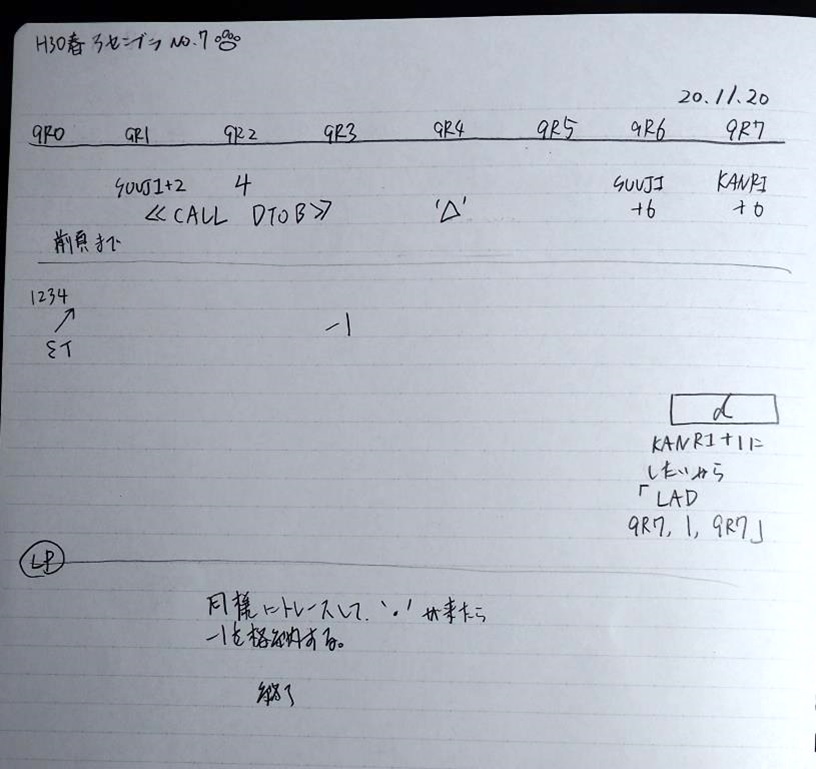 H30春 アセンブラ No.7
20.11.20
GR0 GR1 GR2 GR3 GR4 GR5 GR6 GR7
SUUJI+2 4 SUUJI KANRI
≪CALL DTOB≫ '△' +6 +0
前頁まで
1234
↗ -1
ST
d
KANRI+1に
したいから
「LAD
GR7, 1, GR7」
LP
同様にトレースして、'.'が来たら
-1を格納する。
終了